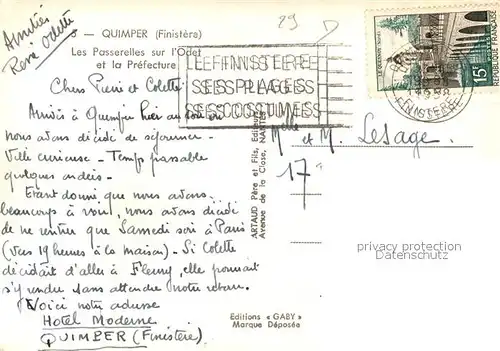 Amitiés
René Odette
29 D
— QUIMPER (Finistère)
Les Passerelles sur l'Odet
et la Préfecture
LE FINISTERE
SES PLAGES
SES COSTUMES
FINISTERE
15F
REPUBLIQUE FRANÇAISE
Chers Pierre et Colette
Arrivés à Quimper hier au soir où
nous avons décidé de séjourner -
Ville curieuse - Temps passable
quelques ondées -
Etant donné que nous avons
beaucoup à voir, nous avons décidé
de ne rentrer que Samedi soir à Paris
(vers 19 heures à la maison) - Si Colette
décidait d'aller à Fleury, elle pourrait
s'y rendre sans attendre notre retour.
Voici notre adresse
Hotel Moderne
QUIMPER (Finistère)
ARTAUD Père et Fils, Editeurs
Avenue de la Close, NANTES
Melle et M. Lesage.
17
Editions «GABY»
Marque Déposée
privacy protection
Datenschutz